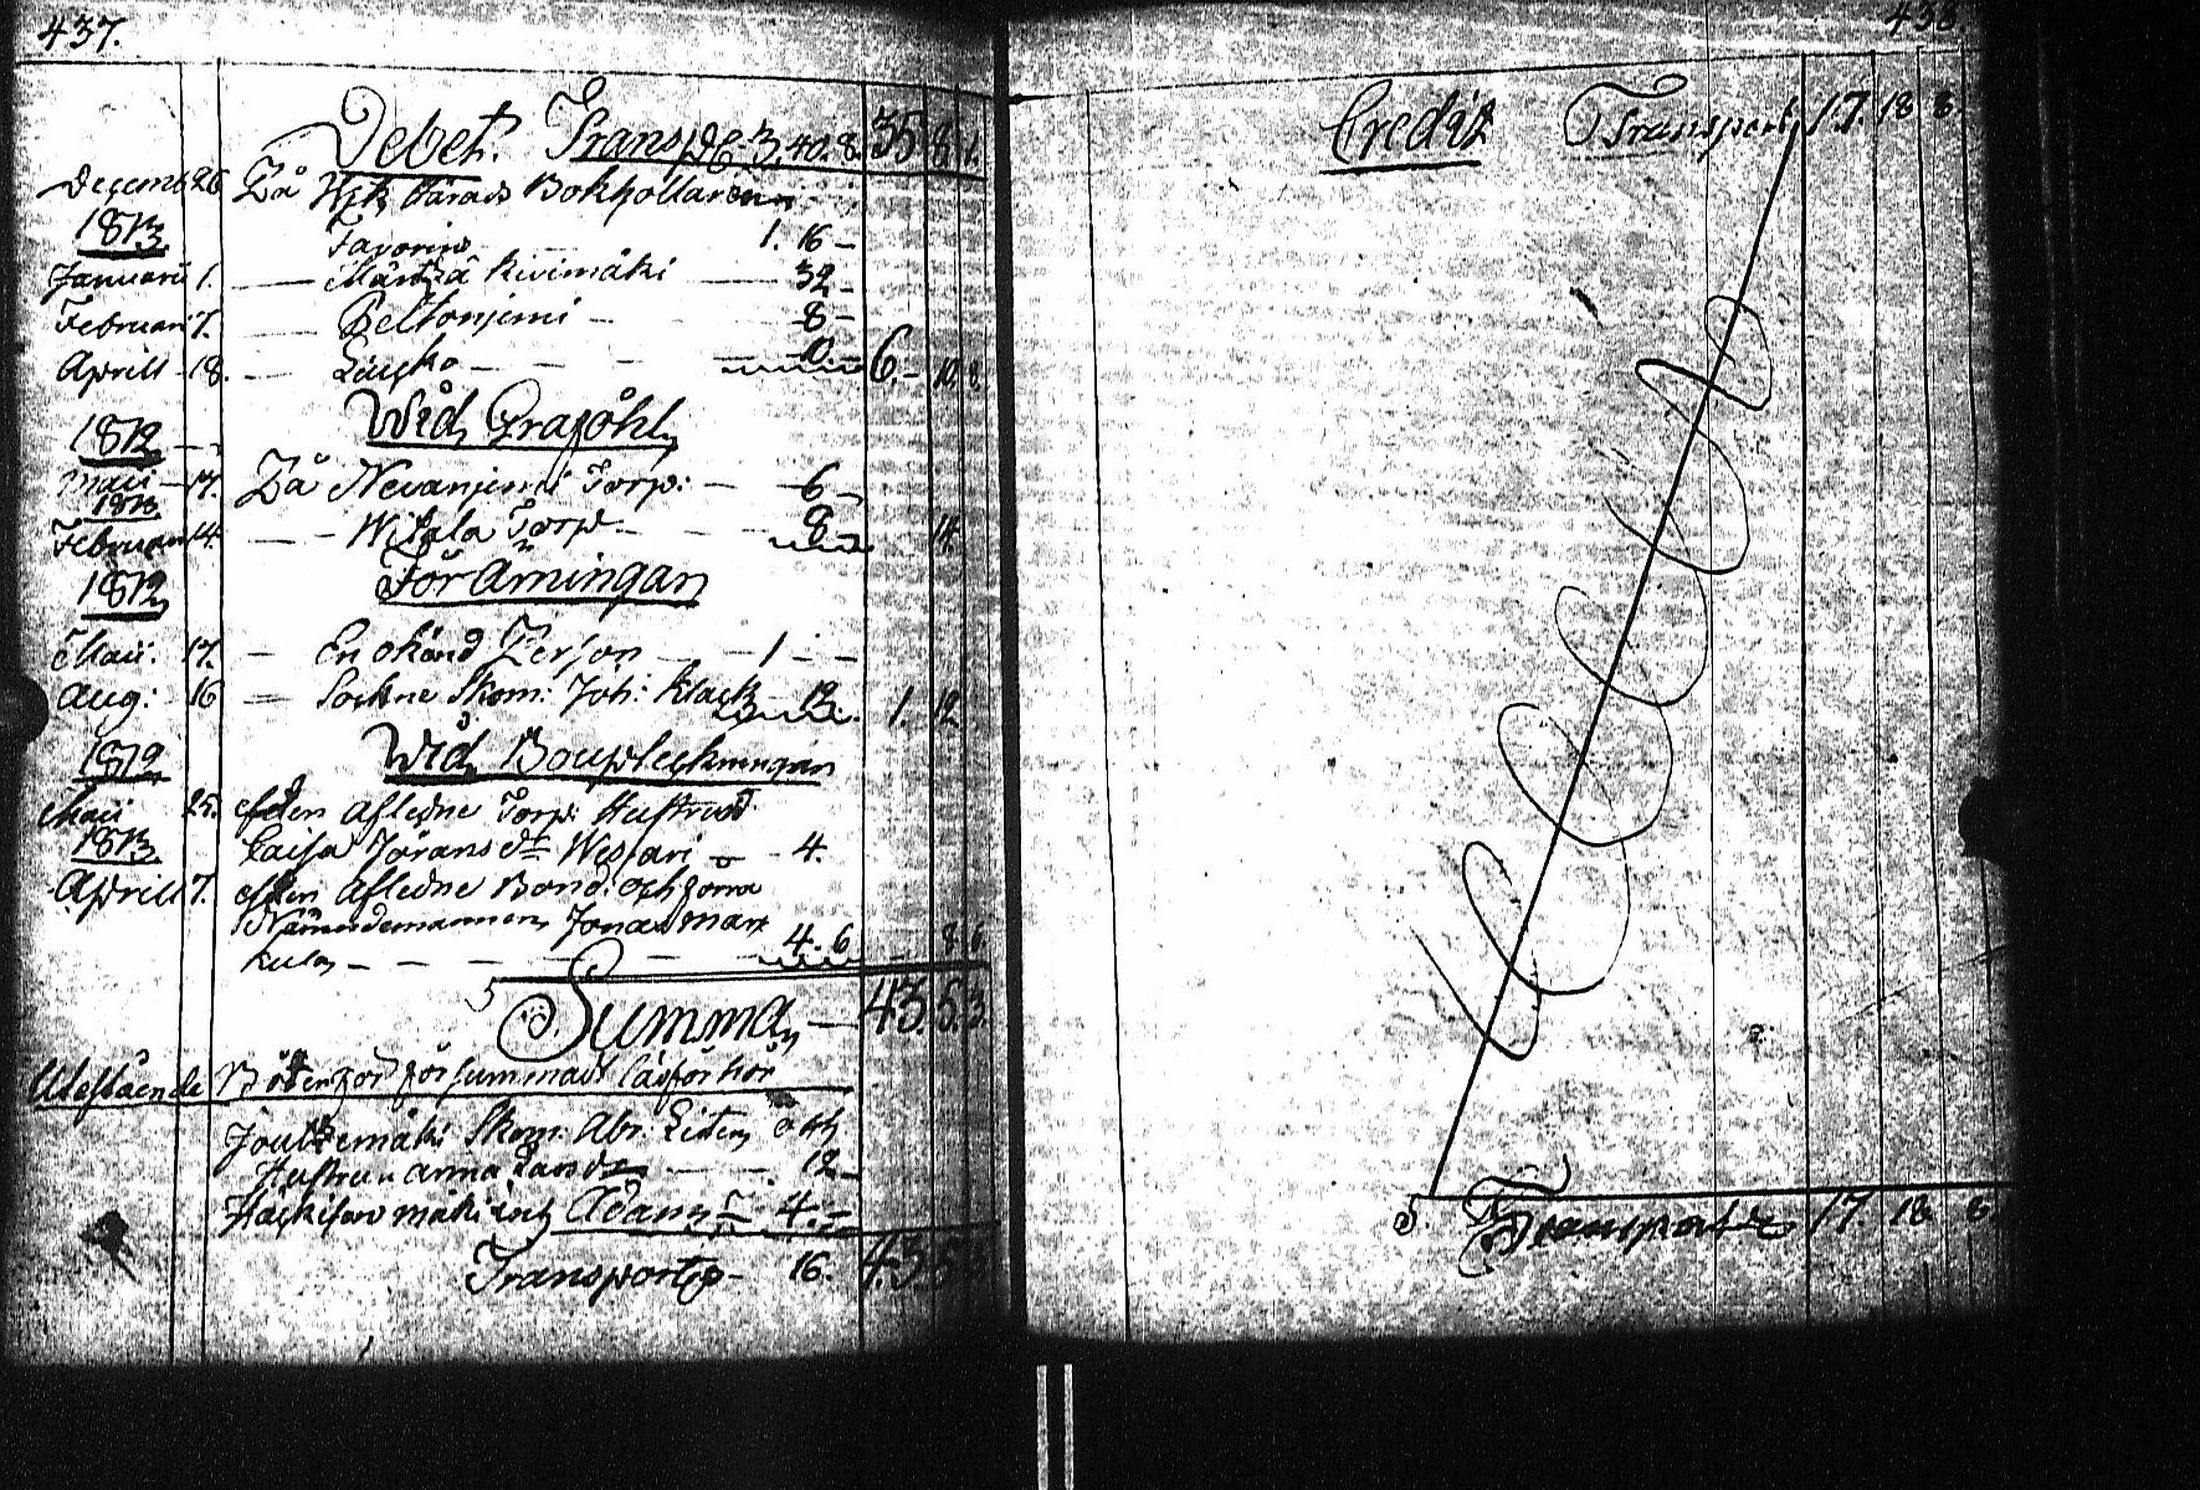 437.
Debet. Transp. 3. 40. 8. 35 8. 1.
Decemb 26 På Wik Bokhollaren
1813
Favorin 1. 16 –
Januarii 1. — Märtzä Kivimäki — 32 –
Februari 7. — Peltonjemi – 8 –
Aprill 18. — – – – 10. – 6. – 10 8.
Wid Graföhl
1812
Maii – 17. På Nevanjemi Torp: – 6 –
1813
Februari 14. — Torp – – – 8 – 14.
För Amingan
1812
Maii. 17. – En okänd Person — 1 – –
Aug: 16 = Sockne Skom: Joh: Klack 12. 1. 12
Wid Boupteckningar
1812
Maii 25. efter Afledne Torp: Hustrun
1813 Caisa Jörans dr 4.
Aprill 7. efter Afledne Bond: och
Nämndemannen Jonas Mark
kula – – – – – 4. 6 8. 6.
Summa — 43. 5. 3.
Utestående Böter för försummadt Läsförhör
Skom: Abr: och
Hustrun Anna Lars dr — – 12 –
4. –
Transport – 16. 43 5
438
Credit Transport 17. 18 8.
S. Transport 17. 18 8